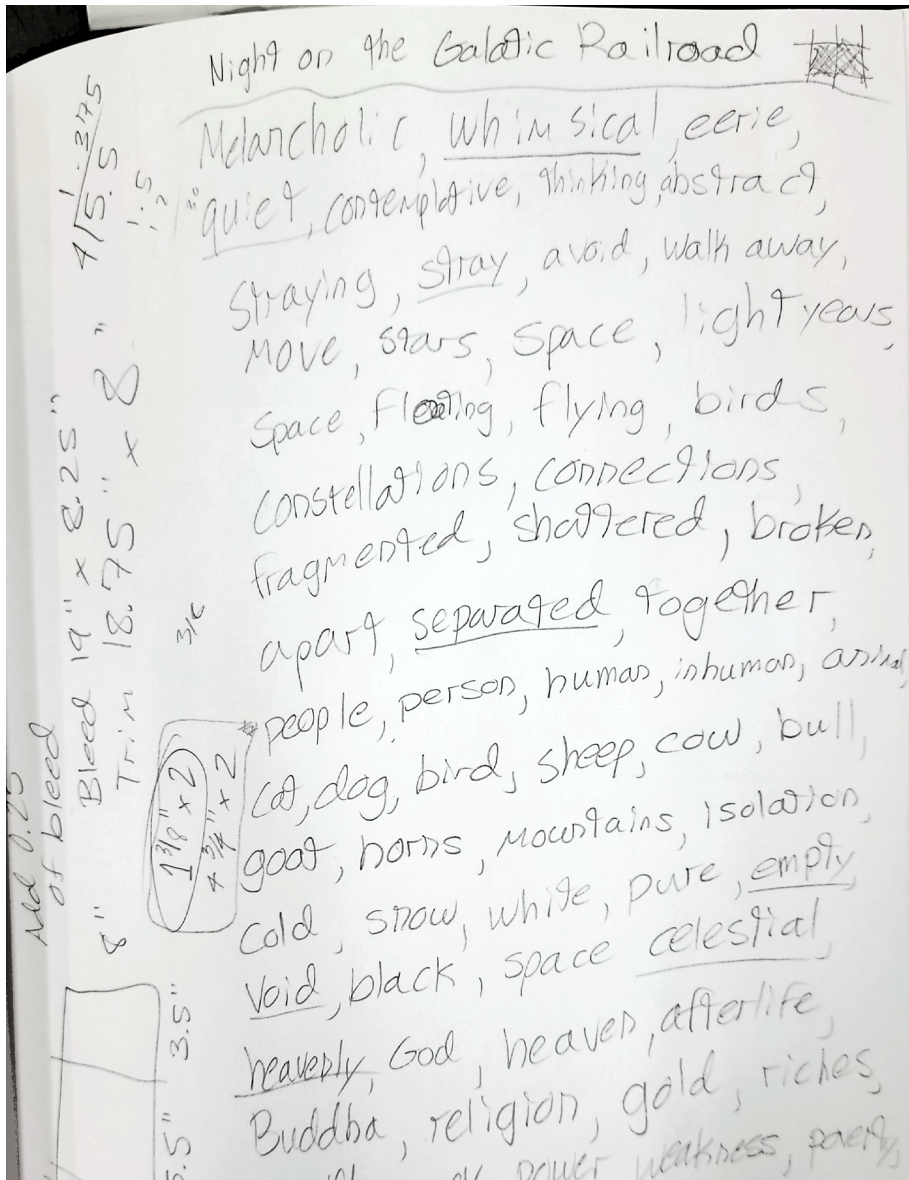 Night on the Galatic Railroad
Melancholic, whimsical, eerie,
quiet, contemplative, thinking, abstract,
Straying, stray, avoid, walk away,
Move, stars, space, lightyears,
Space, Floating, flying, birds,
Constellations, connections,
fragmented, shattered, broken,
apart, separated, together,
people, person, human, inhuman, animal,
Cat, dog, bird, sheep, cow, bull,
goat, horns, Mountains, isolation,
Cold, snow, white, pure, empty
Void, black, space celestial,
heavenly, God, heaven, afterlife,
Buddha, religion, gold, riches,
power weakness, poverty,
1.375
4/5.5
1.5
Bleed 19" x 8.25"
Trim 18.75" x 8"
Add 0.25
of bleed
1 3/8" x 2
+ 3/4" x 2
8"
3.5"
5.5"